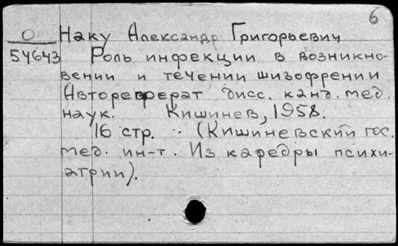 6
О Наку Александр Григорьевич
54643 Роль инфекции в возникно-
вении и течении шизофрении
Автореферат дисс. канд. мед.
наук. Кишинев, 1958.
16 стр. (Кишиневский гос.
мед. ин-т. Из кафедры психи-
атрии).